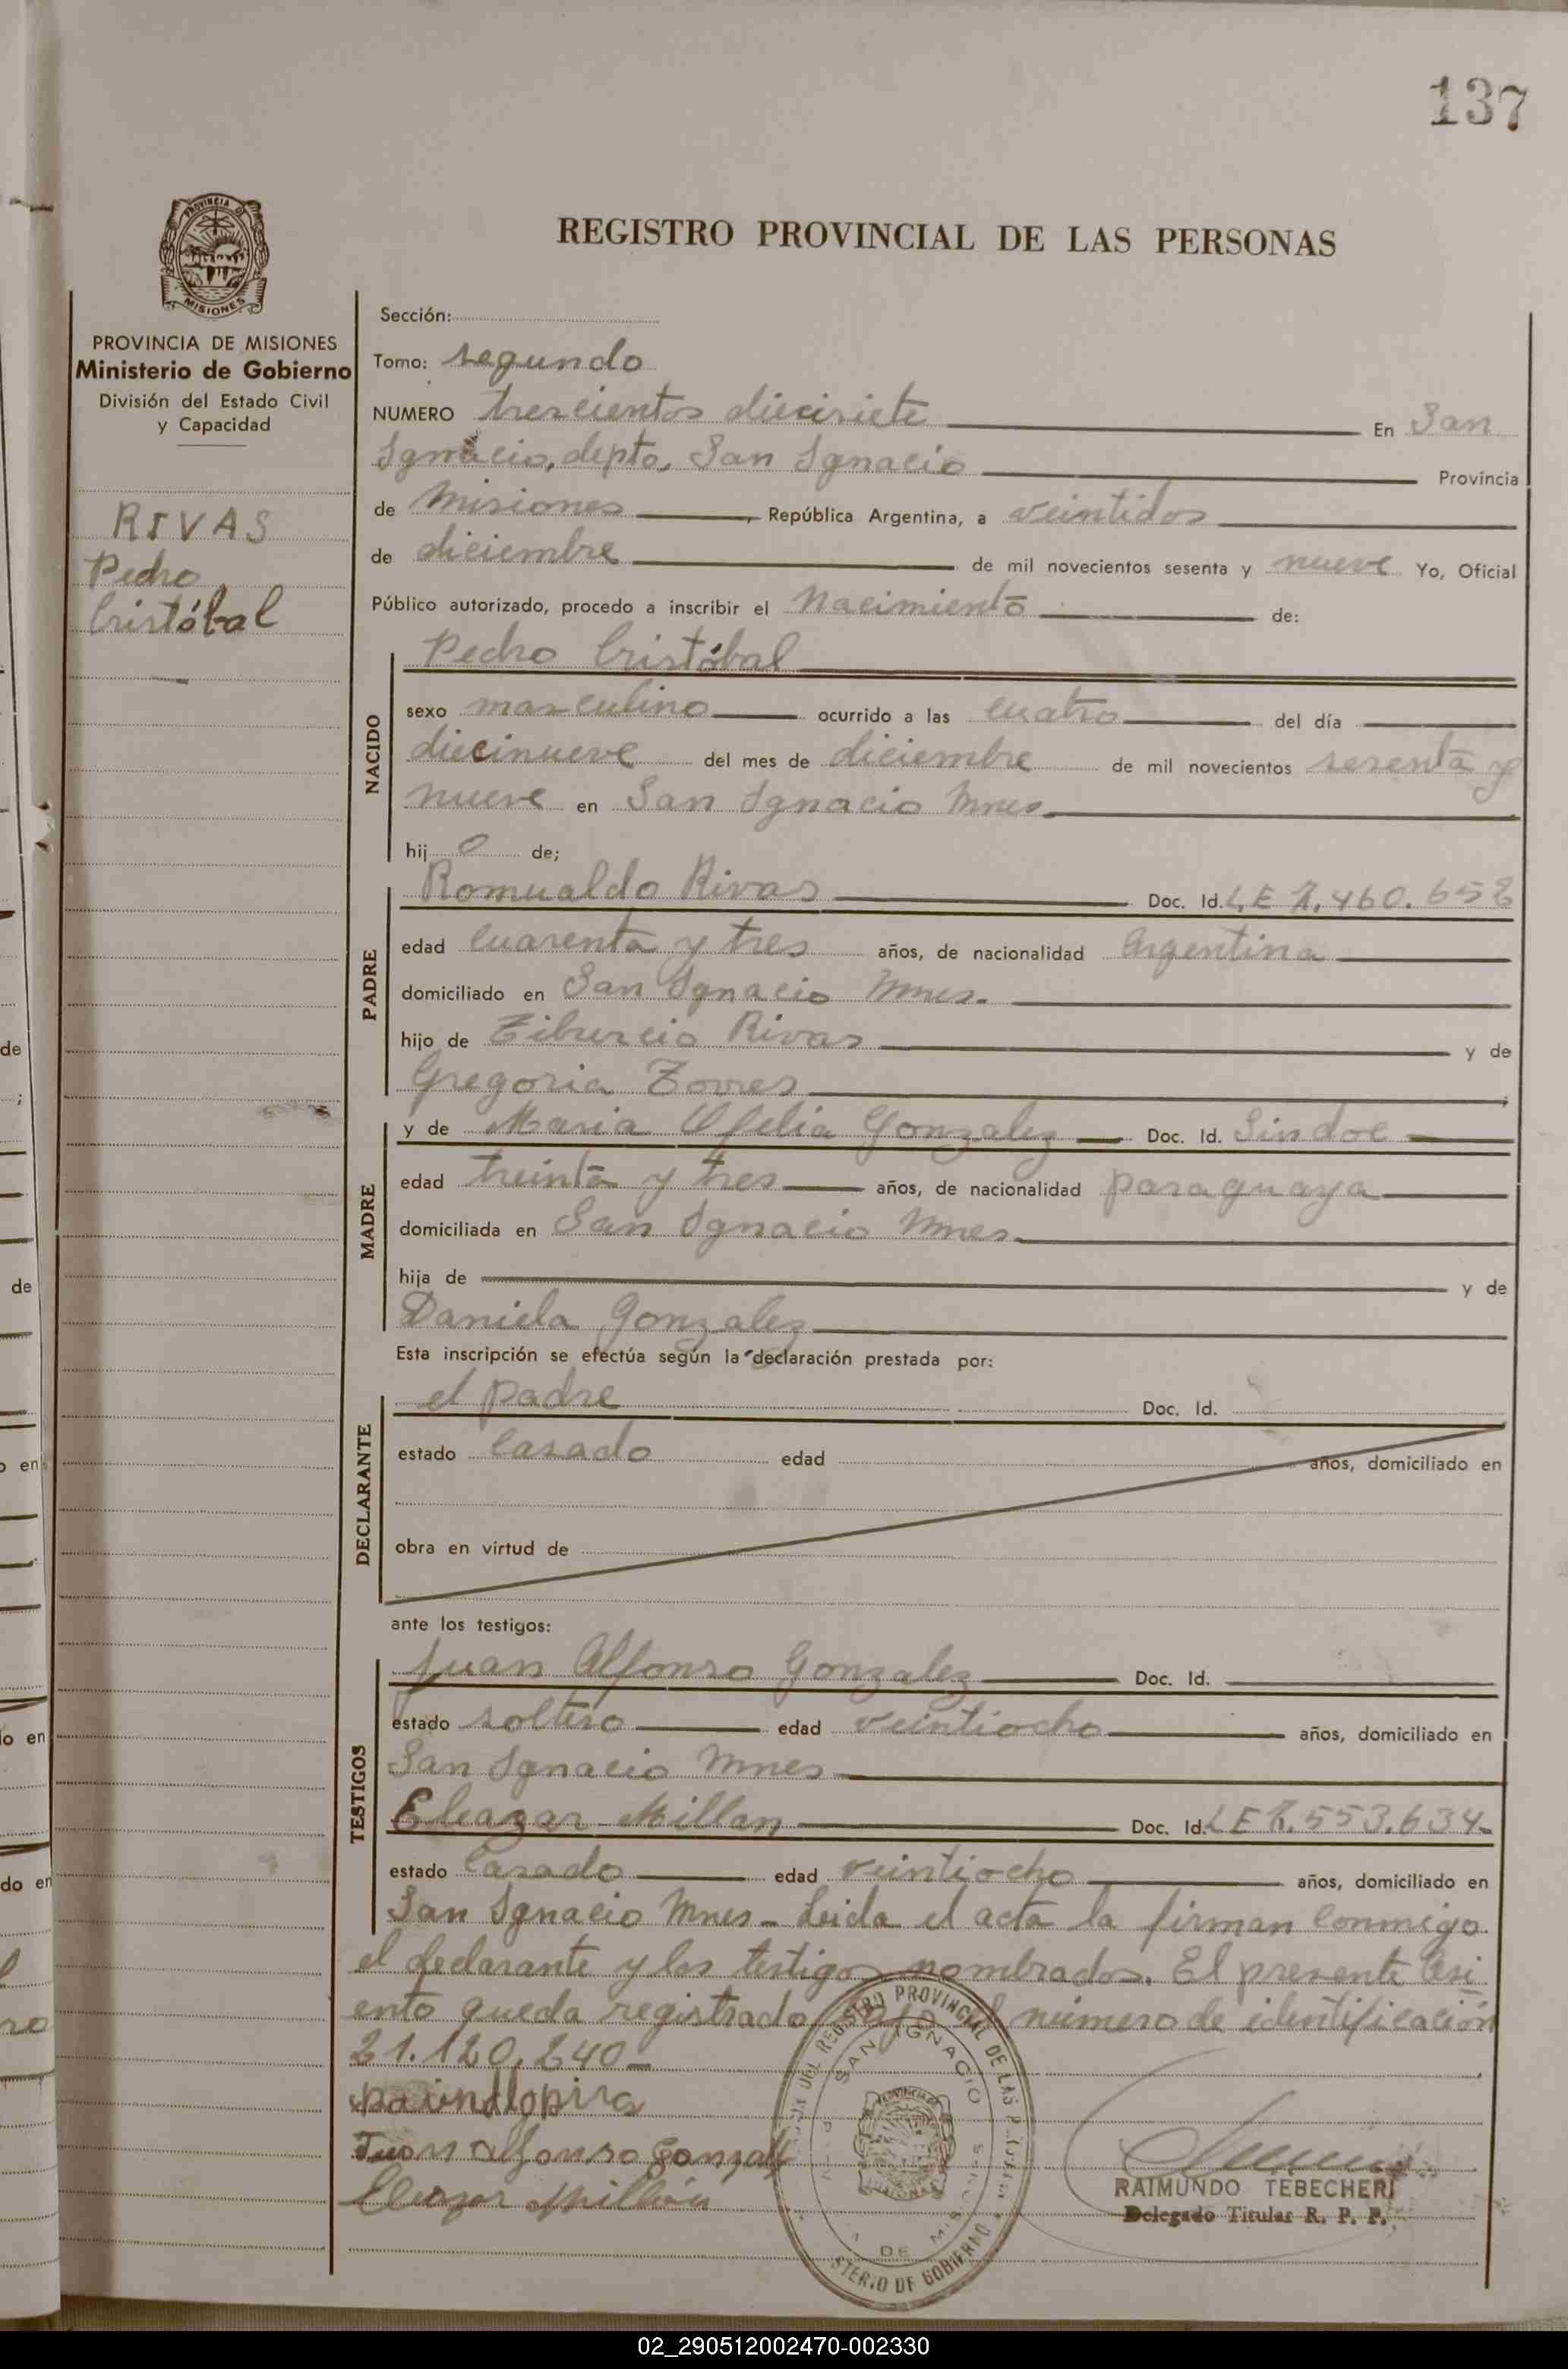 137
PROVINCIA DE
MISIONES
REGISTRO PROVINCIAL DE LAS PERSONAS
PROVINCIA DE MISIONES
Ministerio de Gobierno
División del Estado Civil
y Capacidad
RIVAS
Pedro
Cristóbal
Sección:
Tomo: segundo
NUMERO trescientos diecisiete En San
Ignacio, depto. San Ignacio Provincia
de Misiones, República Argentina, a veintidos
de diciembre de mil novecientos sesenta y nueve Yo, Oficial
Público autorizado, procedo a inscribir el Nacimiento de:
NACIDO
Pedro Cristóbal
sexo masculino ocurrido a las cuatro del día
diecinueve del mes de diciembre de mil novecientos sesenta y
nueve en San Ignacio Mnes.
hij o de;
PADRE
Romualdo Rivas Doc. Id. L.E 7.460.658
edad cuarenta y tres años, de nacionalidad Argentina
domiciliado en San Ignacio Mnes.
hijo de Tiburcio Rivas y de
Gregoria Torres
MADRE
y de Maria Ofelia Gonzalez Doc. Id. Sindoc
edad treinta y tres años, de nacionalidad paraguaya
domiciliada en San Ignacio Mnes.
hija de y de
Daniela Gonzalez
Esta inscripción se efectúa según la declaración prestada por:
DECLARANTE
el padre Doc. Id.
estado Casado edad años, domiciliado en
obra en virtud de
ante los testigos:
TESTIGOS
Juan Alfonso Gonzalez Doc. Id.
estado soltero edad veintiocho años, domiciliado en
San Ignacio Mnes
Eleazar Millan Doc. Id. LE 7.553.634-
estado Casado edad veintiocho años, domiciliado en
San Ignacio Mnes - Leida el acta la firman conmigo
el declarante y los testigos nombrados. El presente asi
ento queda registrado bajo el número de identificación
21.120.240-
Juan alfonso Gonzalez
Eleazar Millán
RAIMUNDO TEBECHERI
Delegado Titular R. P. P.
DEL REGISTRO PROVINCIAL DE LAS
SAN IGNACIO
DE MIS
STERIO DE GOBIERNO
de
;
de
o en
lo en
do en
02_290512002470-002330